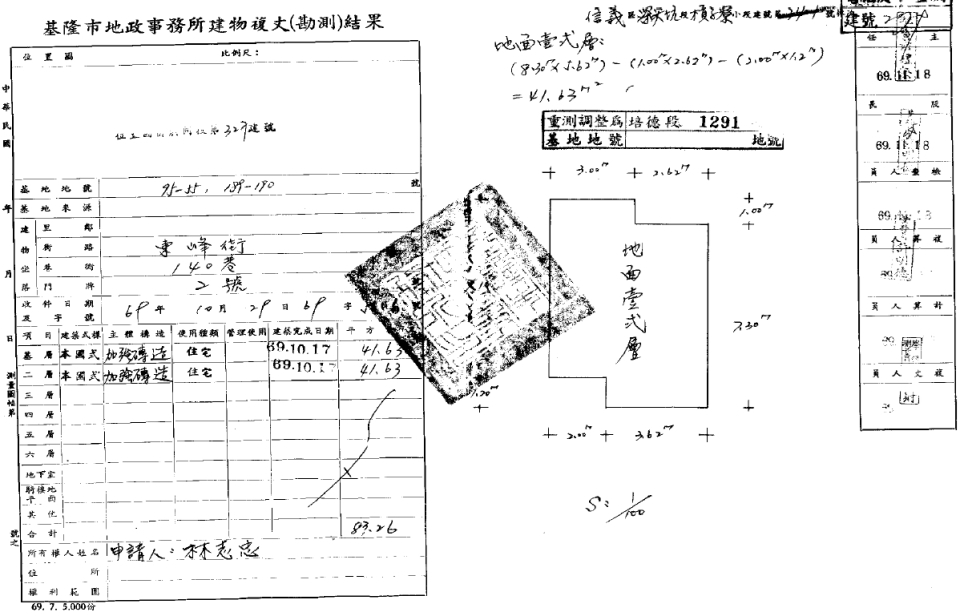 基隆市地政事務所建物複丈(勘測)結果
位置圖
比例尺：
中華民國 年 月 日
測量圖帖第 號之
327建號
基地地號 95-55, 189-190 號
基地來源
建物坐落
里鄰
街路 東峰街
巷衖 140巷
門牌 2號
收件日期及字號 69年 10月 29日 69字
項目 建築式樣 主體構造 使用種類 管理使用 建築完成日期 平方
基層 本國式 加強磚造 住宅 69.10.17 41.63
二層 本國式 加強磚造 住宅 69.10.17 41.63
三層
四層
五層
六層
地下室
騎樓地平面
其他
合計 83.26
所有權人姓名 申請人：林志忠
住所
權利範圍
69. 7. 5,000份
信義區深天坑段
小段建號
地面壹弍層:
(8.30ᵐ×5.62ᵐ) - (1.00ᵐ×2.62ᵐ) - (2.00ᵐ×1.2ᵐ)
= 41.63ᵐ²
重測調整為 培德段 1291
基地地號 地號
3.00ᵐ 2.62ᵐ
1.00ᵐ
地面壹弍層
7.30ᵐ
1.20ᵐ
2.00ᵐ 3.62ᵐ
S: 1/100
建號
主任
69.11.18
股長
69.11.18
檢查人員
複算人員
計算人員
複丈人員